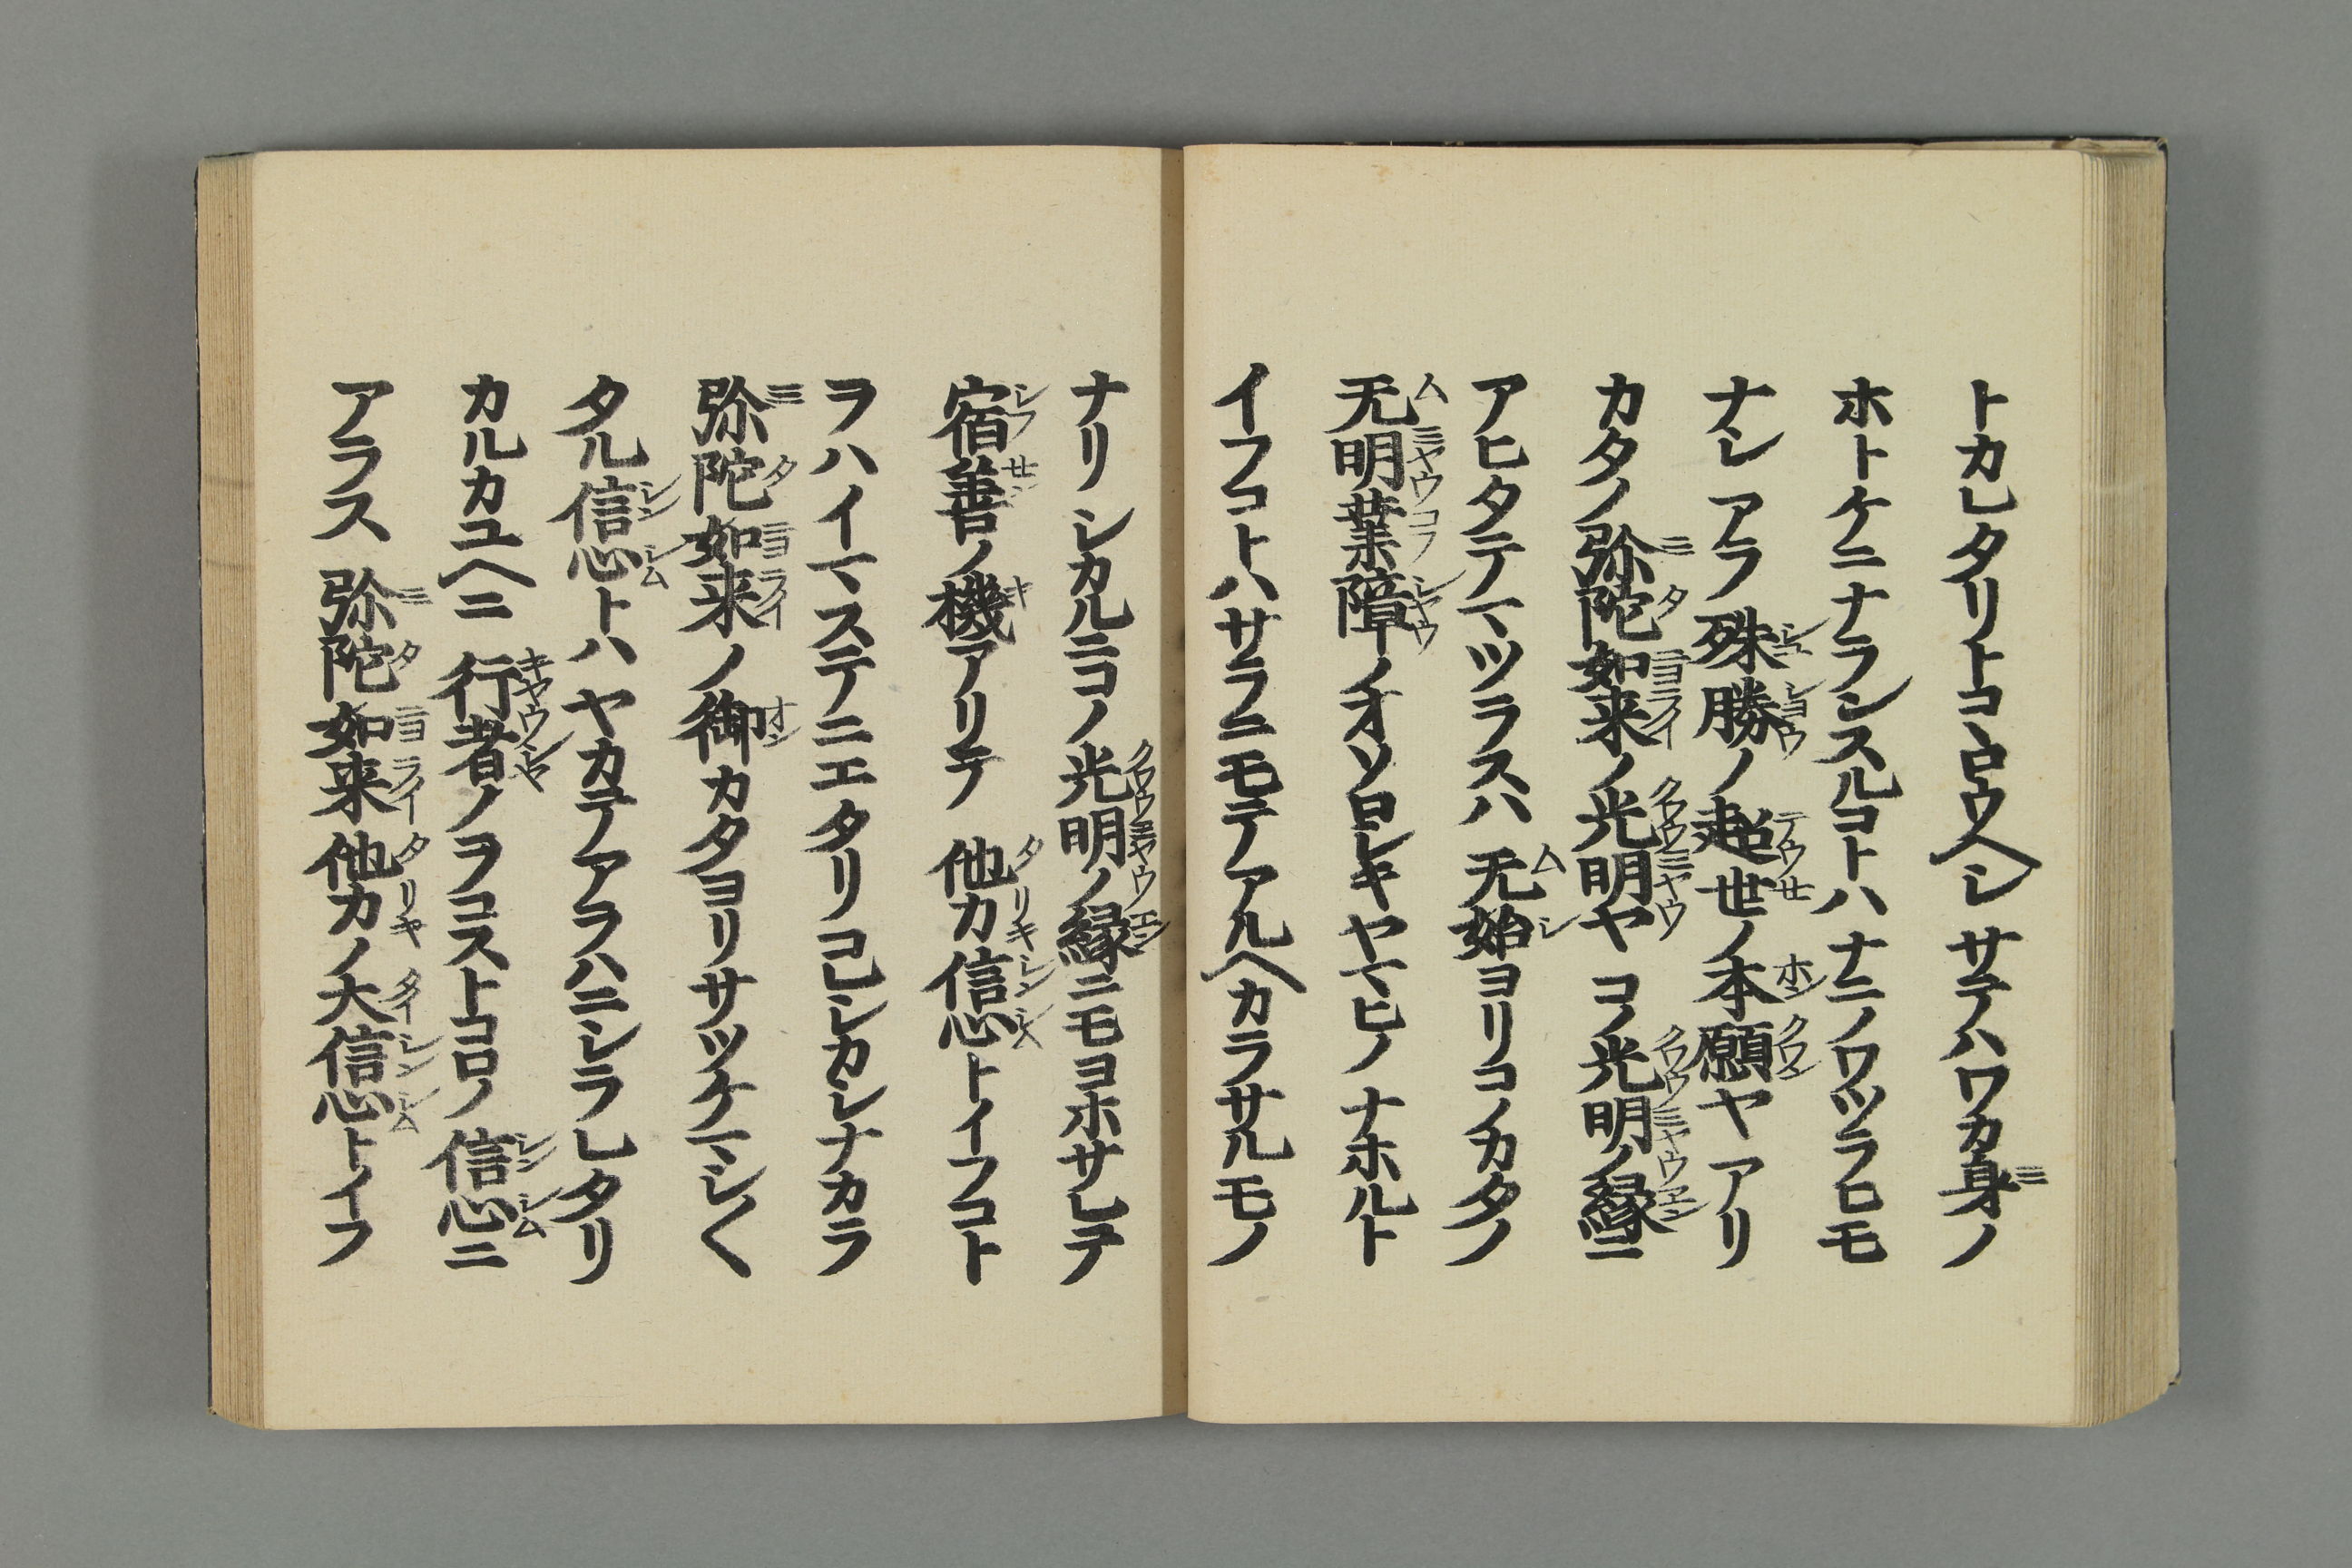 トカレタリトコヽロウヘシ サテハワカ身ノ
ホトケニナランスルコトハ ナニノワツラヒモ
ナシ アラ 殊勝ノ超世ノ本願ヤ アリ
カタノ弥陀如来ノ光明ヤ コノ光明ノ縁ニ
アヒタテマツラスハ 无始ヨリコノカタノ
无明業障ノオソロシキヤマヒノ ナホルト
イフコトハ サラニモテアルヘカラサルモノ
ナリ シカルニコノ光明ノ縁ニモヨホサレテ
宿善ノ機アリテ 他力信心トイフコト
ヲハイマステニエタリ コレシカシナカラ
弥陀如来ノ御カタヨリサツケマシ〱
タル信心トハ ヤカテアラハニシラレタリ
カルカユヘニ 行者ノヲコストコロノ 信心ニ
アラス 弥陀如来他力ノ大信心トイフ